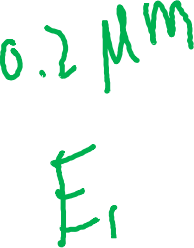 0.2 μm
E₁